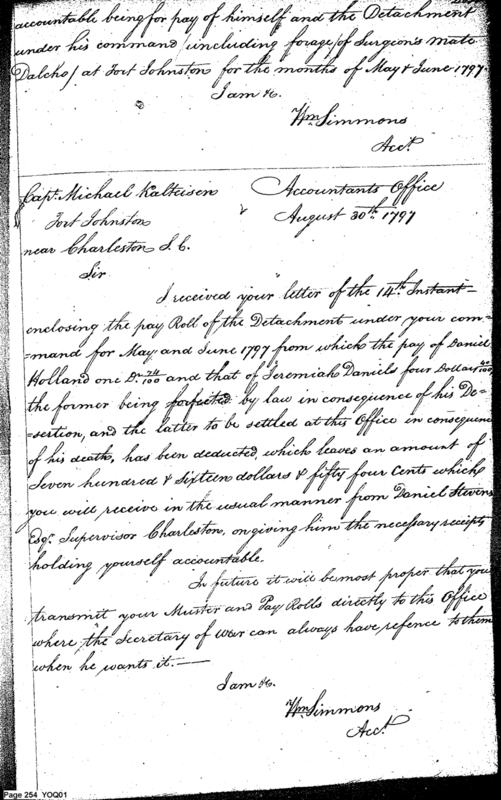 accountable being for pay of himself and the Detachment
under his command (including forage of Surgeon's mate
Dalcho) at Fort Johnston for the months of May & June 1797.
I am &c.
Wm Simmons
Acct.
Capt. Michael Kalteisen
Accountants Office
Fort Johnston
August 30th. 1797
near Charleston S. C.
Sir
I received your letter of the 14th. Instant
enclosing the pay Roll of the Detachment under your com-
-mand for May and June 1797 from which the pay of Daniel
Holland one Dr. 74/100 and that of Jeremiah Daniels four Dollars 40/100
the former being forfeited by law in consequence of his De-
-sertion, and the latter to be settled at this Office in consequence
of his death, has been deducted, which leaves an amount of
Seven hundred & Sixteen dollars & fifty four Cents which
you will receive in the usual manner from Daniel Stevens
Esqr. Supervisor Charleston, on giving him the necessary receipts
holding yourself accountable.
In future it will be most proper that you
transmit your Muster and Pay Rolls directly to this Office
where the Secretary of War can always have refence to them
when he wants it.—
I am &c.
Wm Simmons
Acct.
Page 254 YOQ01